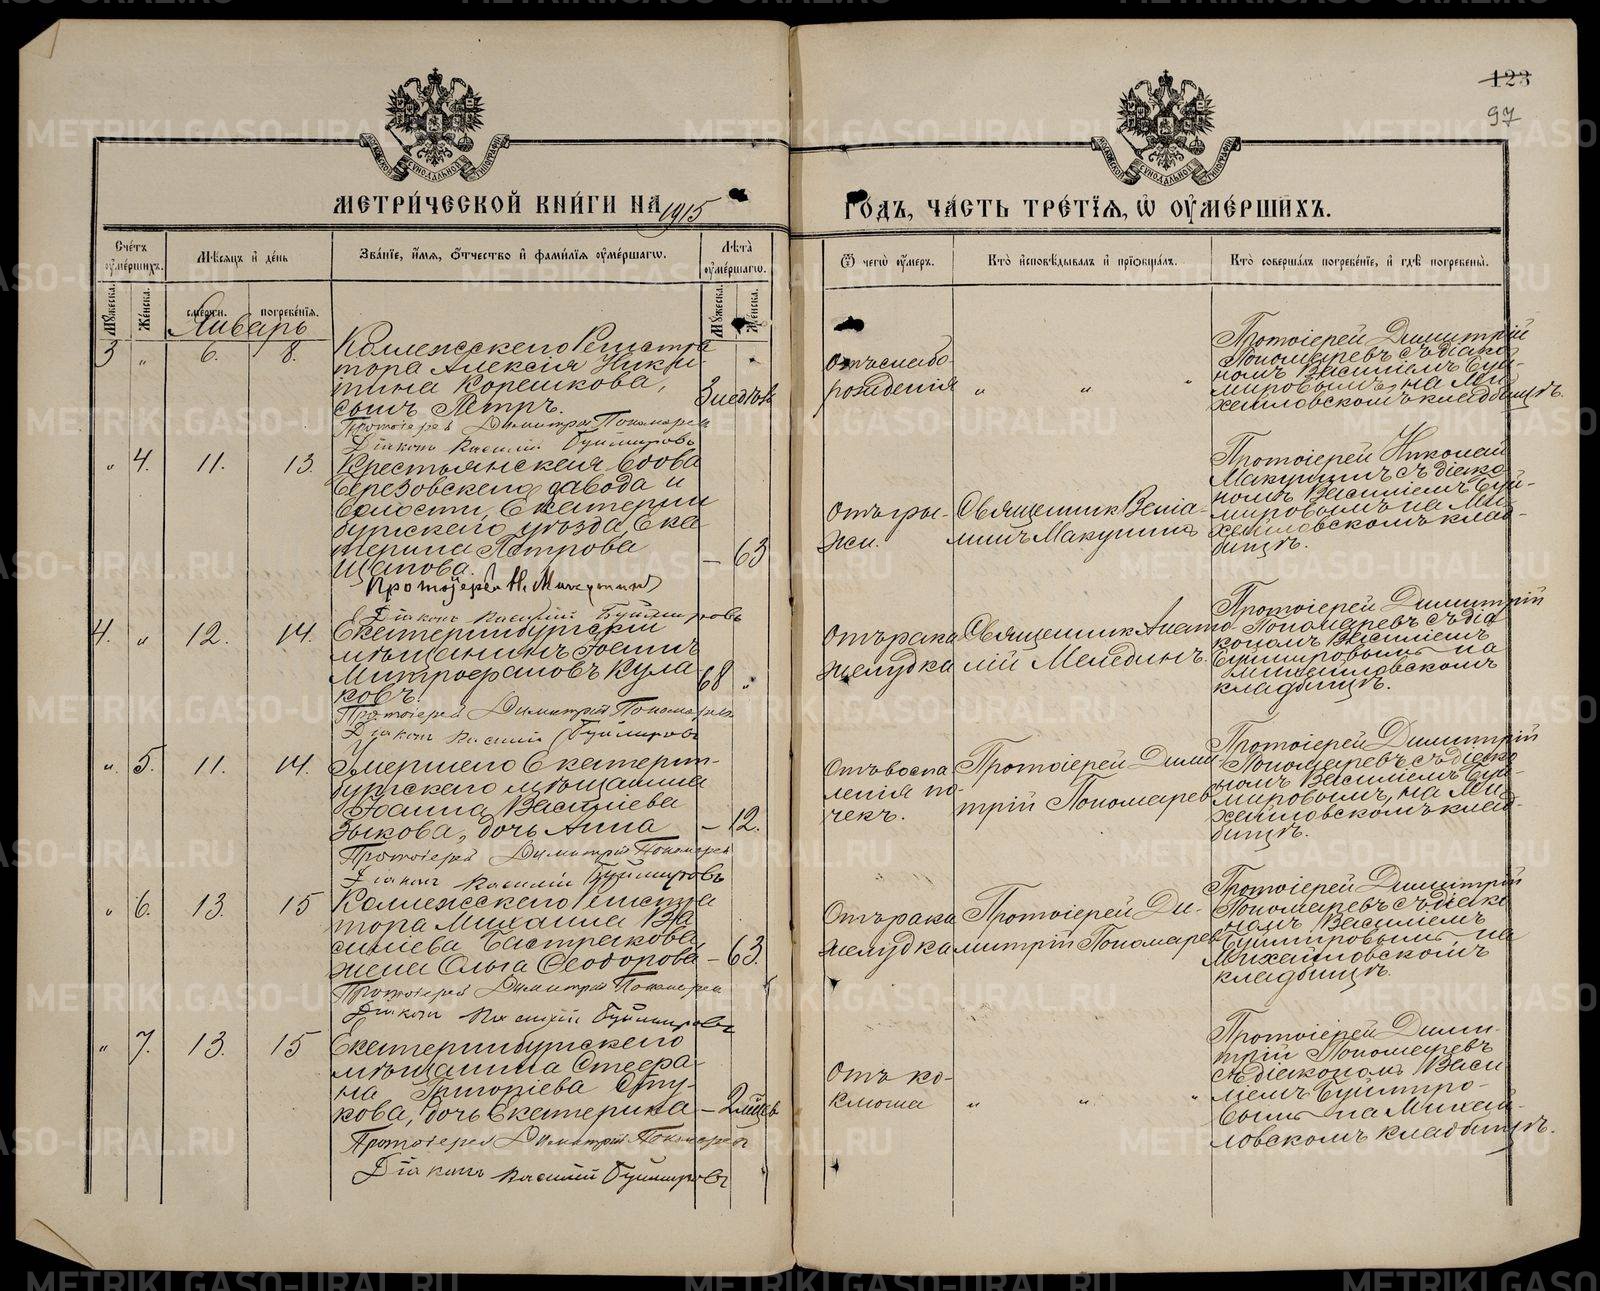 123
97
МЕТРИ́ЧЕСКОЙ КНИ́ГИ НА 1915
ГОДЪ, ЧА́СТЬ ТРЕ́ТІѦ, Ѽ ОУМЕ́РШИХЪ.
Сче́тъ оуме́ршихъ.
Мѣ́сѧцъ и де́нь
Зва́нїе, и́мѧ, о́тчество и фами́лїѧ оуме́ршагѡ.
Лѣ́та оуме́ршагѡ.
Ѿ чегѡ̀ оу́меръ.
Кто̀ исповѣ́дывалъ и прїобща́лъ.
Кто̀ соверша́лъ погребе́нїе, и гдѣ̀ погребены̀.
Му́жеска. Же́нска.
сме́рти. погребе́нїѧ.
Му́жеска. Же́нска.
Январь
3 „ 6. 8.
Коллежскаго Регистра
тора Алексія Никит-
тина Корешкова,
сынъ Петръ.
3 недѣл.
Протоіерей Димитрій Пономарев
Діаконъ Василій Буймировъ
Отъ слабо-
рожденія
„ „ „
Протоіерей Димитрій
Пономаревъ съ діако
номъ Василіемъ Буй-
мировымъ, на Ми
хайловскомъ кладбищѣ.
„ 4. 11. 13.
Крестьянская вдова
Березовскаго завода и
волости, Екатерин
бургскаго уѣзда, Ека
терина Петрова
Щапова.
— 63
Протоіерей Н. Макушинъ
Діаконъ Василій Буймировъ
Отъ гры-
жи.
Священник Веніа-
минъ Макушинъ
Протоіерей Николай
Макушинъ съ діако
номъ Василіемъ Буй-
мировымъ на Ми-
хайловскомъ клад-
бищѣ.
4. „ 12. 14.
Екатеринбургскій
мѣщанинъ Іоаннъ
Митрофановъ Кула
ковъ.
68 „
Протоіерей Димитрій Пономарев
Діаконъ Василій Буймировъ
Отъ рака
желудка
Священник Анато
лій Меледин.
Протоіерей Димитрій
Пономаревъ съ діа
кономъ Василіемъ
Буймировымъ на
Михайловскомъ
кладбищѣ.
„ 5. 11. 14.
Умершего Екатерин-
бургскаго мѣщанина
Іоанна Васильева
Зыкова, дочь Анна
— 12.
Протоіерей Димитрій Пономарев
Діаконъ Василій Буймировъ
Отъ воспа
ленія по-
чекъ.
Протоіерей Дими
трій Пономарев
Протоіерей Димитрій
Пономаревъ съ діако
номъ Василіемъ Буй-
мировымъ, на Ми-
хайловскомъ клад-
бищѣ.
„ 6. 13. 15
Коллежскаго Регистра
тора Михаила Ва
сильева Бастракова
жена Ольга Ѳеодорова
— 63.
Протоіерей Димитрій Пономарев
Діаконъ Василій Буймировъ
Отъ рака
желудка
Протоіерей Ди-
митрій Пономарев
Протоіерей Димитрій
Пономаревъ съ діако
номъ Василіемъ
Буймировымъ на
Михайловскомъ
кладбищѣ.
„ 7. 13. 15
Екатеринбургскаго
мѣщанина Стефа-
на Григоріева
кова, дочь Екатерина
— 2 мѣсяц
Протоіерей Димитрій Пономарев
Діаконъ Василій Буймировъ
Отъ ко-
клюша
„ „ „
Протоіерей Дими-
трій Пономаревъ
съ діакономъ Васи
ліемъ Буймиро-
вымъ на Михай-
ловскомъ кладбищѣ.
METRIKI.GASO-URAL.RU